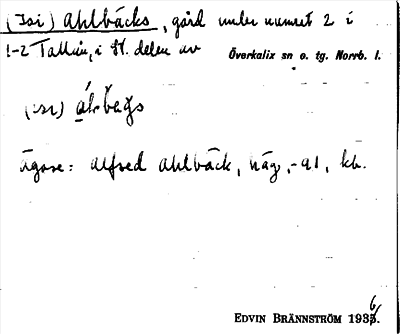 (Isi) Ahlbäcks, gård under numret 2 i
1-2 Tallvik, i st. delen av Överkalix sn o. tg. Norrb. l.
(isi) áḷbaḡs
Ägare: Alfred Ahlbäck, häg, -91, kh.
EDVIN BRÄNNSTRÖM 1936.